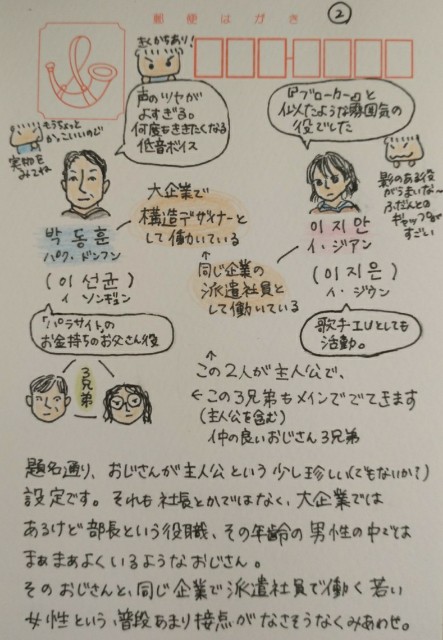 郵便はがき
②
きくかちあり!
声のツヤが
よすぎる。
何度もききたくなる
低音ボイス
もうちょっと
かっこいいのど
実物を
みてね
『ブローカー』と
似たような雰囲気の
役でした
影のある役
がうまいな〜
ふだんとの
ギャップが
すごい
박동훈
パク・ドンフン
(이선균)
イ ソンギュン
「パラサイト」の
お金持ちのお父さん役
大企業で
構造デザイナーと
して働いている
↑
同じ企業の
派遣社員と
して働いている
이지안
イ・ジアン
(이지은)
イ・ジウン
歌手IUとしても
活動。
3兄弟
↑
この2人が主人公で、
←この3兄弟もメインででてきます
(主人公を含む)
仲の良いおじさん3兄弟
題名通り、おじさんが主人公という少し珍しい(でもないか?)
設定です。それも社長とかではなく、大企業では
あるけど部長という役職、その年齢の男性の中では
まぁまぁよくいるようなおじさん。
そのおじさんと、同じ企業で派遣社員で働く若い
女性という、普段あまり接点がなさそうなくみあわせ。